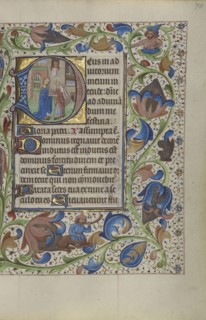 Deus in ad
iutorium
meum in
tende dñe
ad adiuuã
dum me
festina
Gloria patri. Assumpta ē.
Dominus regnauit decorē
indutus est indutus est
dominus fortitudinem et pre
cinxit se Etenim firmauit or
bem terre qui non commouebit
Parata sedes tua ex tunc a se
culo tu es Eleuauerunt flu